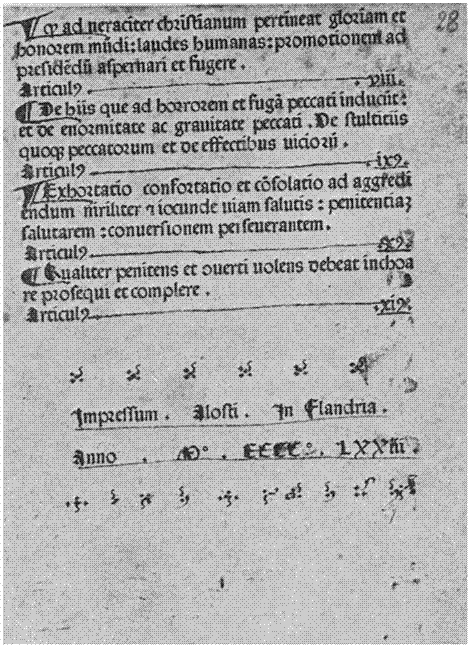 ¶ Qꝙ ad ueraciter christianum pertineat gloriam et
honorem mūdi: laudes humanas: promotionem ad
presidēdū aspernari et fugere .
Articulꝰ .viii.
¶ De hiis que ad horrorem et fugā peccati inducūt:
et de enormitate ac grauitate peccati . De stulticiis
quoqꝫ peccatorum et de effectibus uiciorū .
Articulꝰ .ixꝰ.
¶ Exhortatio confortatio et cōsolatio ad aggredi
endum uiriliter ⁊ iocunde uiam salutis : penitentiaꝫ
salutarem : conuersionem perseuerantem .
Articulꝰ .xꝰ.
¶ Qualiter penitens et cuerti uolens debeat inchoa
re prosequi et complere .
Articulꝰ .xiꝰ.
Impressum . Alosti . In Flandria .
Anno . Mº . CCCCº . LXXIII .
28